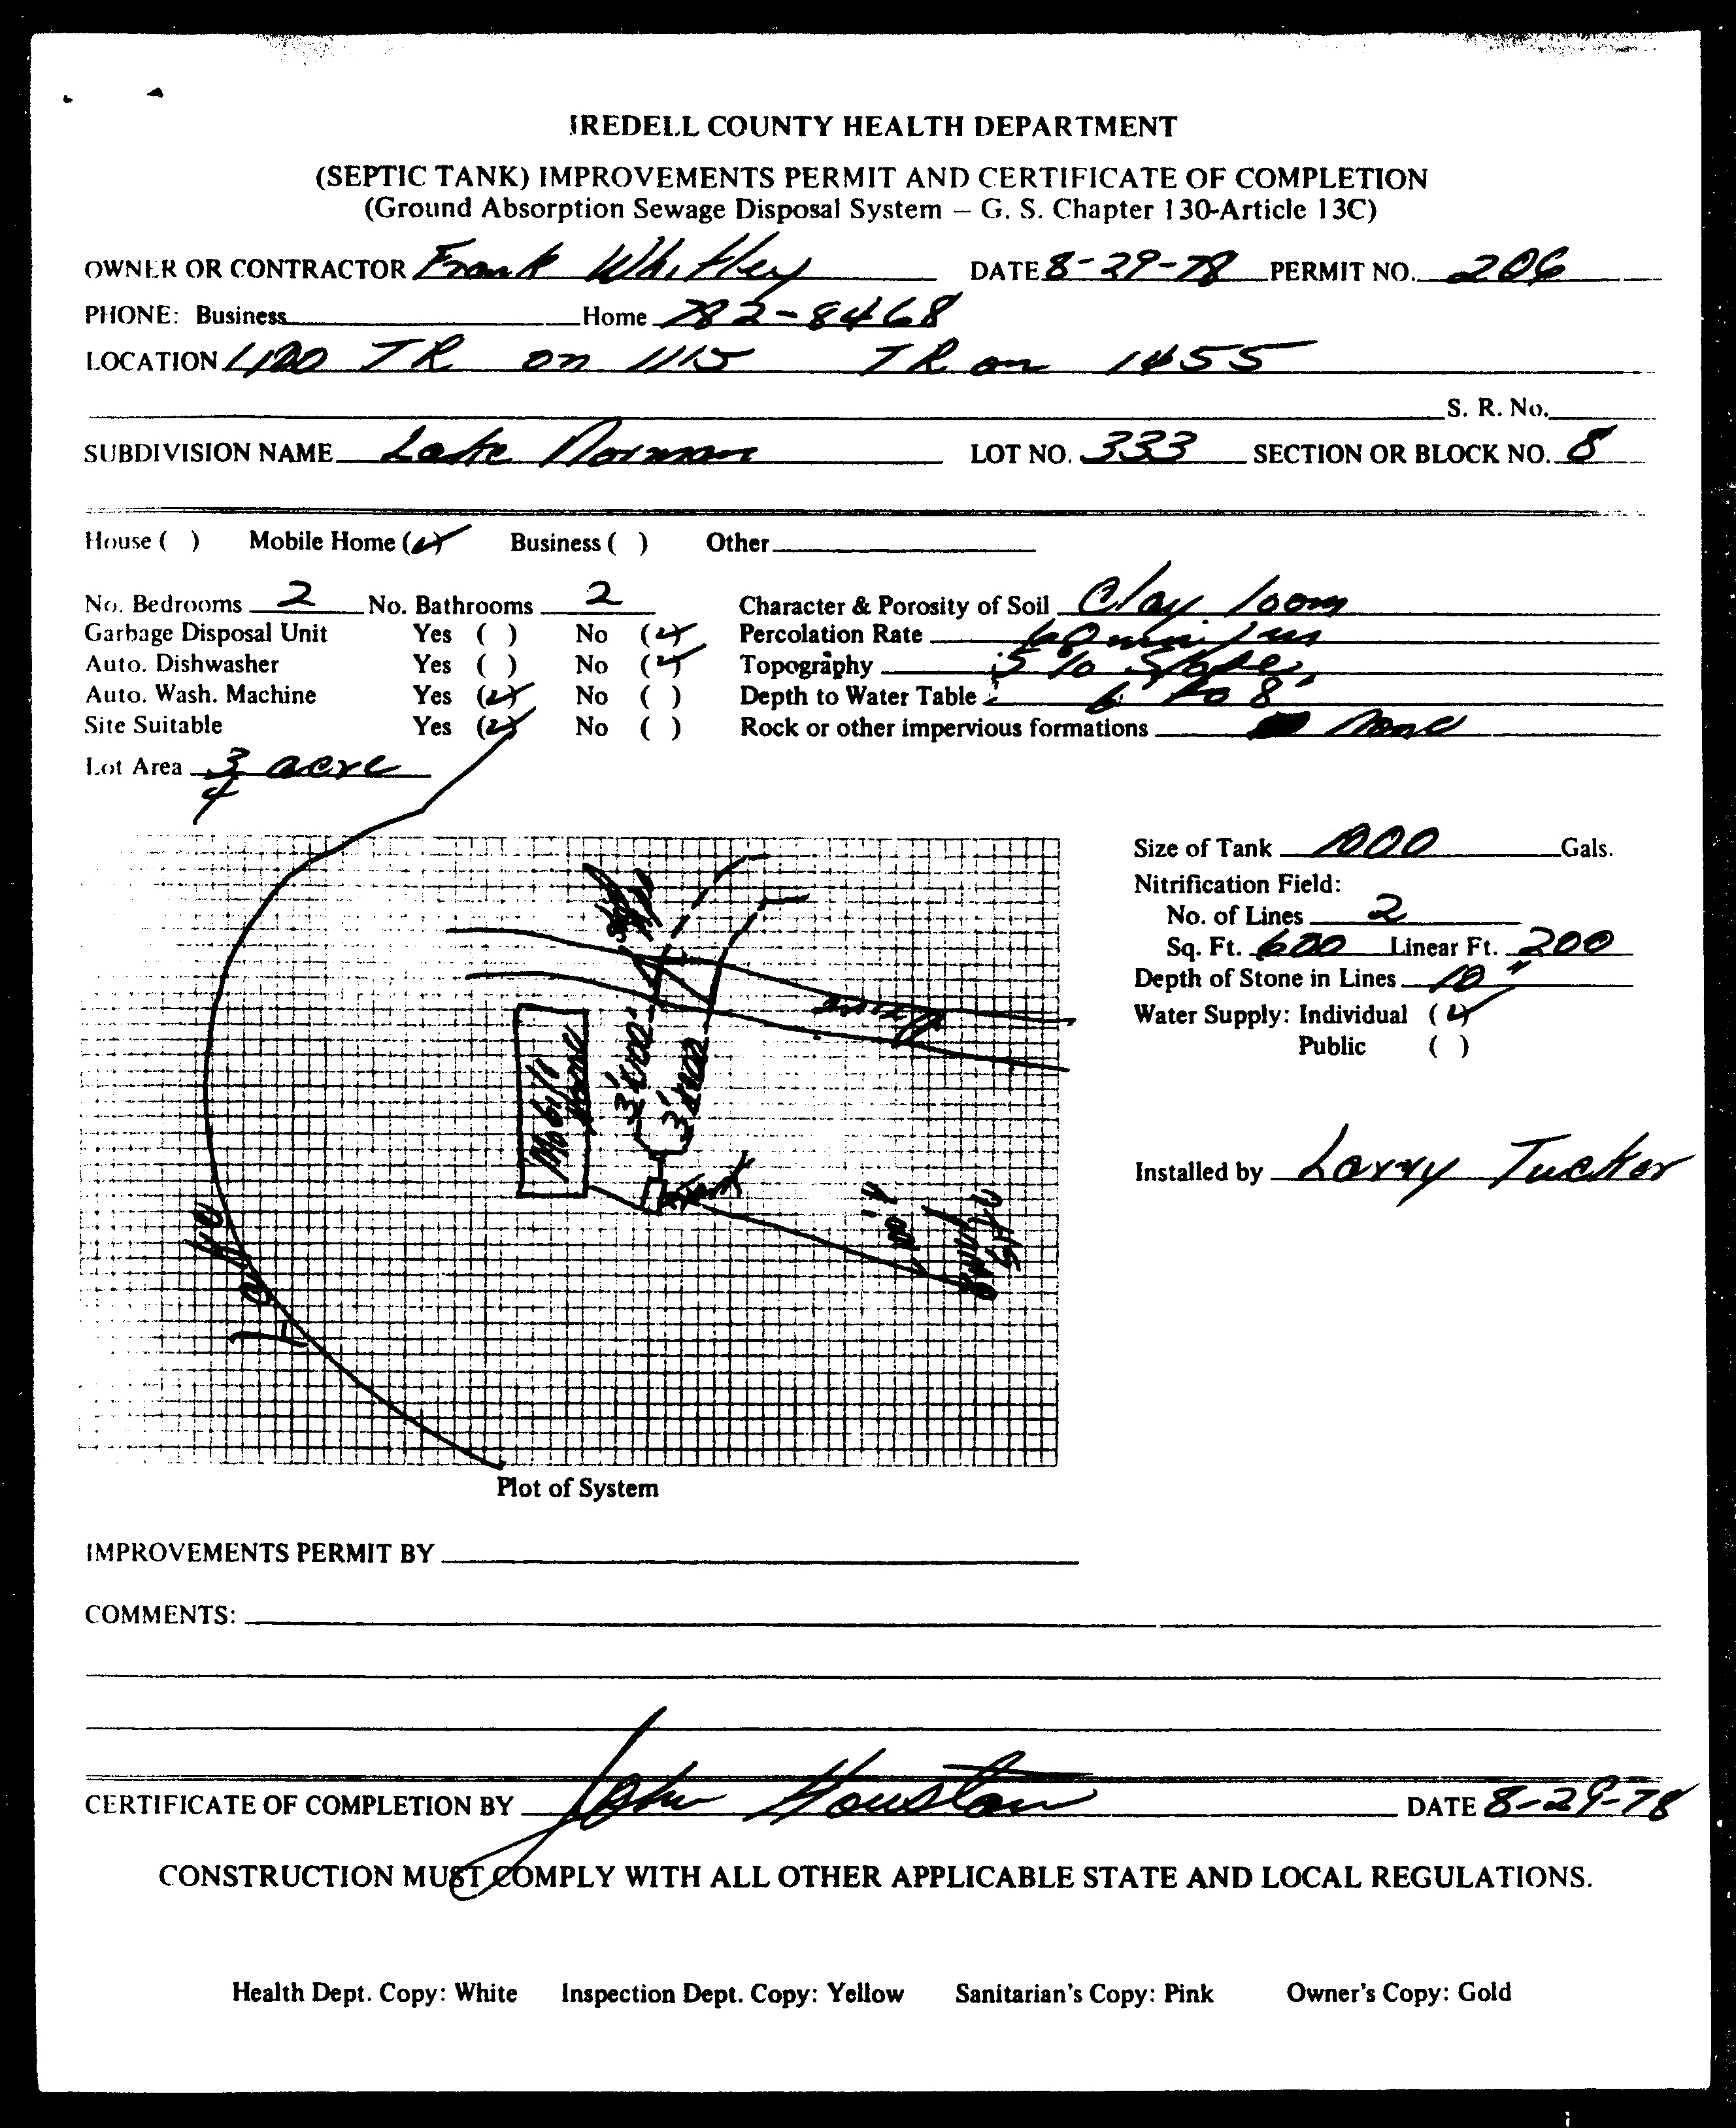 IREDELL COUNTY HEALTH DEPARTMENT
(SEPTIC TANK) IMPROVEMENTS PERMIT AND CERTIFICATE OF COMPLETION
(Ground Absorption Sewage Disposal System – G. S. Chapter 130-Article 13C)
OWNER OR CONTRACTOR Frank Whitley DATE 8-29-78 PERMIT NO. 206
PHONE: Business Home 782-8468
LOCATION TR on 1115 TR on 1455
S. R. No.
SUBDIVISION NAME Lake Norman LOT NO. 333 SECTION OR BLOCK NO. 8
House ( ) Mobile Home (✓) Business ( ) Other
No. Bedrooms 2 No. Bathrooms 2 Character & Porosity of Soil Clay loom
Garbage Disposal Unit Yes ( ) No (✓) Percolation Rate 60 min / in
Auto. Dishwasher Yes ( ) No (✓) Topography 5 % Slope
Auto. Wash. Machine Yes (✓) No ( ) Depth to Water Table 6' to 8'
Site Suitable Yes (✓) No ( ) Rock or other impervious formations none
Lot Area 3/4 acre
Size of Tank 1000 Gals.
Nitrification Field:
No. of Lines 2
Sq. Ft. 600 Linear Ft. 200
Depth of Stone in Lines 10"
Water Supply: Individual (✓)
Public ( )
Installed by Larry Tucker
Mobile Home
3'x100'
3'x100'
Tank
Drive
100'
Lake
Plot of System
IMPROVEMENTS PERMIT BY
COMMENTS:
CERTIFICATE OF COMPLETION BY John Houston DATE 8-29-78
CONSTRUCTION MUST COMPLY WITH ALL OTHER APPLICABLE STATE AND LOCAL REGULATIONS.
Health Dept. Copy: White Inspection Dept. Copy: Yellow Sanitarian's Copy: Pink Owner's Copy: Gold